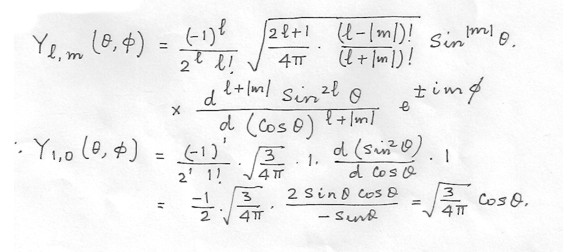 Y_{l,m} (θ, φ) = \frac{(-1)^l}{2^l l!} \sqrt{\frac{2l+1}{4π} \cdot \frac{(l-|m|)!}{(l+|m|)!}} Sin^{|m|} θ.
× \frac{d^{l+|m|} Sin^{2l} θ}{d (Cos θ)^{l+|m|}} e^{±imφ}
∴ Y_{1,0} (θ, φ) = \frac{(-1)^1}{2^1 1!} \cdot \sqrt{\frac{3}{4π}} \cdot 1 \cdot \frac{d (Sin^2 θ)}{d cos θ} \cdot 1
= \frac{-1}{2} \cdot \sqrt{\frac{3}{4π}} \cdot \frac{2 Sin θ Cos θ}{- Sin θ} = \sqrt{\frac{3}{4π}} Cos θ.